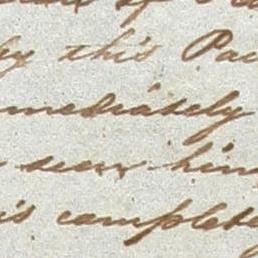 by this Pac
mmediately
seen him
is complete